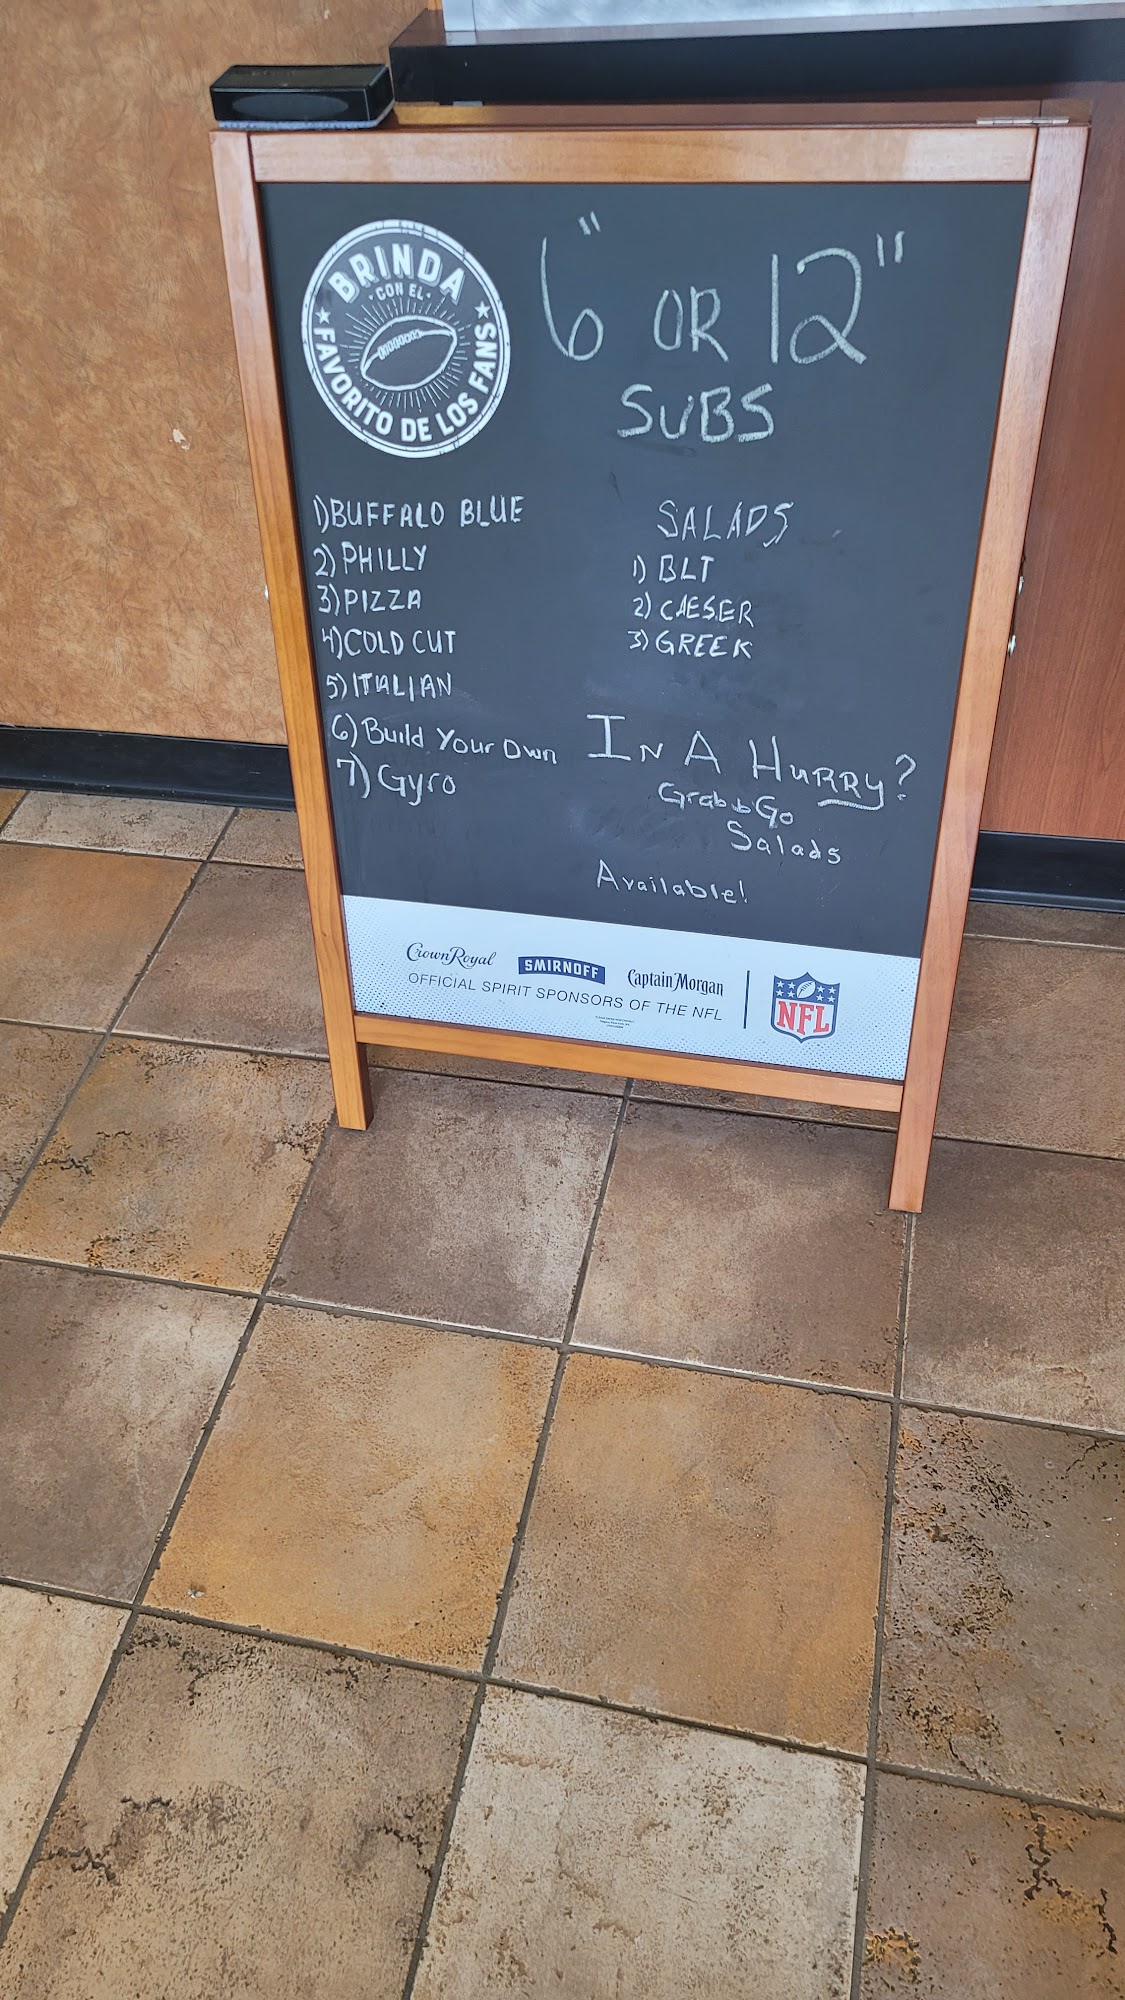 BRINDA
CON EL
FAVORITO DE LOS FANS
6" OR 12"
SUBS
1) BUFFALO BLUE
2) PHILLY
3) PIZZA
4) COLD CUT
5) ITALIAN
6) Build Your Own
7) Gyro
SALADS
1) BLT
2) CAESER
3) GREEK
IN A HURRY?
Grab & Go
Salads
Available!
Crown Royal SMIRNOFF Captain Morgan
OFFICIAL SPIRIT SPONSORS OF THE NFL
NFL